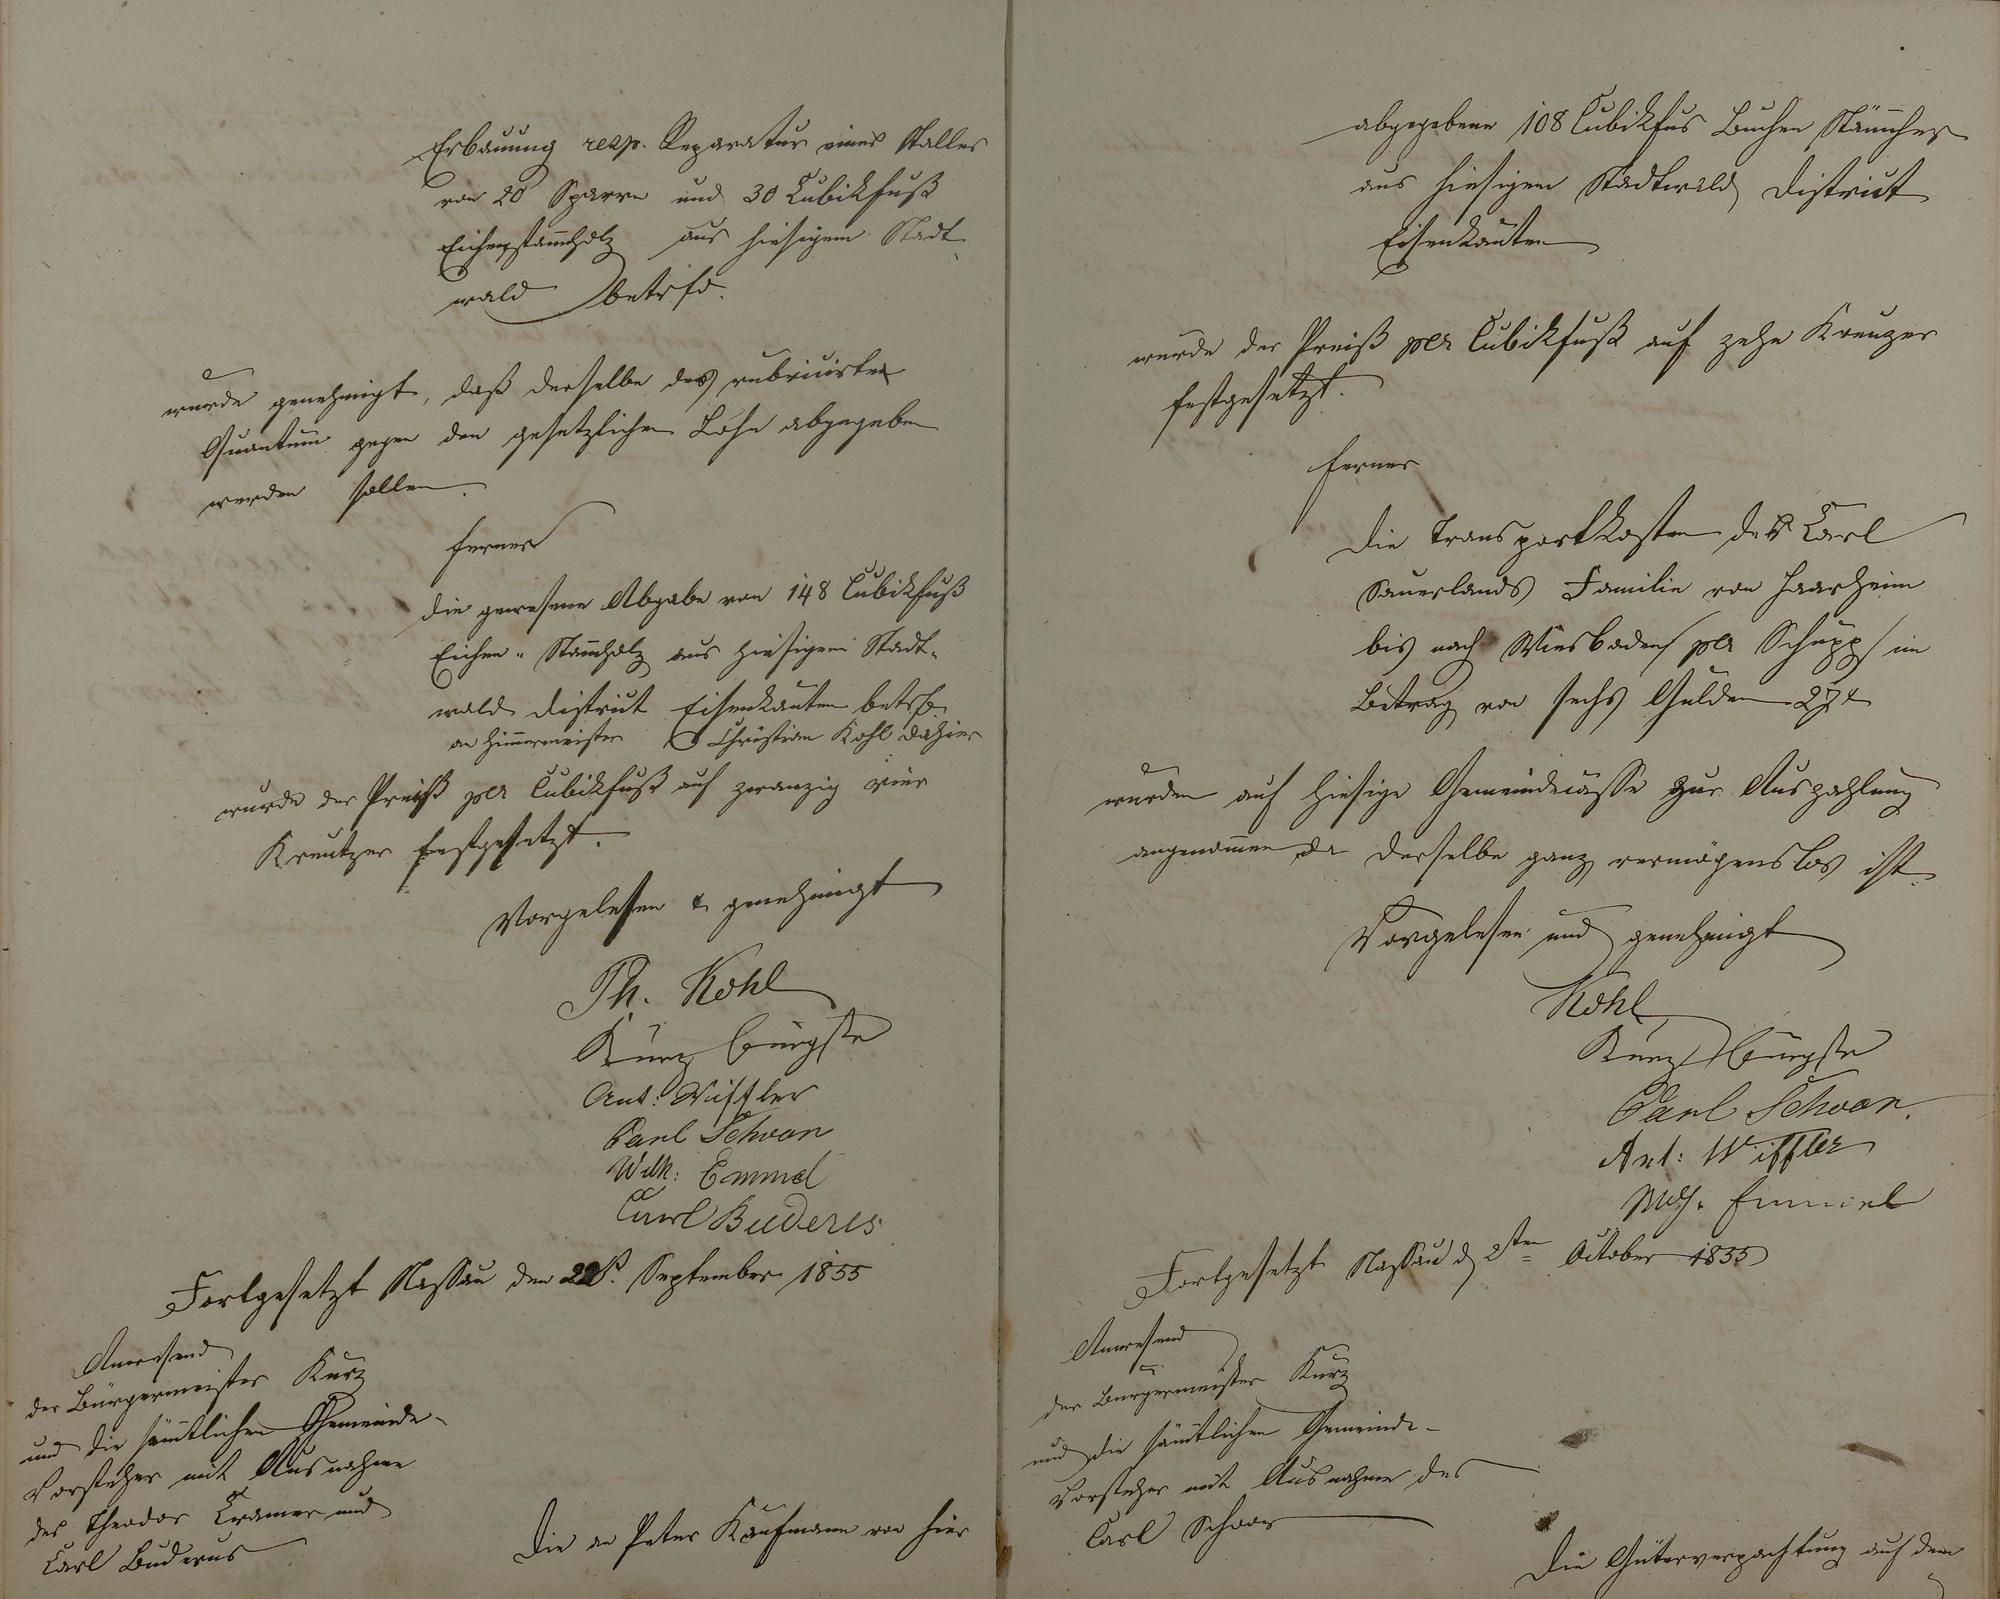 Erbauung resp. Reparatur eines Stalles
von 20 Sparren und 30 Cubikfuß
Eichenstammholz aus hiesigem Stadt-
wald betrfd.
wurde genehmigt, daß derselbe das rubricirte
Quantum gegen den gesetzlichen Lohn abgegeben
werden sollen.
ferner
die gewesene Abgabe von 148 Cubikfuß
Eichen-Stammholz aus hiesigem Stadt-
wald District Eisenkauten betrfd.
an Zimmermeister Christian Kohl dahier
wurde der Preiß per Cubikfuß auf zwanzig vier
Kreutzer festgesetzt.
Vorgelesen & genehmigt
Ph. Kohl
Kurz Bürgstr
Ant: Wiffler
Carl Schoor
Wilh: Emmel
Carl Buderus
Fortgesetzt Nassau den 22t. September 1855
Anwesend
der Bürgermeister Kurz
und die sämtlichen Gemeinde-
Vorsteher mit Ausnahme
des Theodor Cramer und
Carl Buderus
Die an Peter Kaufmann von hier
abgegebene 108 Cubikfus Buchen Stämmches
aus hiesigem Stadtwald District
Eisenkauten
wurde der Preiß per Cubikfuß auf zehn Kreuzer
festgesetzt.
ferner
Die Transportkosten der Carl
Sauerlands Familie von Haarheim
bis nach Wiesbaden / per Schupp / im
Betrag von sechs Gulden 27 x
wurden auf hiesige Gemeindecasse zur Auszahlung
angenommen da derselbe ganz vermögenslos ist.
Vorgelesen und genehmigt
Kohl
Kurz Bürgstr
Carl Schoor.
Ant: Wiffler
Wilh. Emmel
Fortgesetzt Nassau d 2ten October 1855
Anwesend
der Burgermeister Kurz
und die sämtlichen Gemeinde-
Vorsteher mit Ausnahme des
Carl Schoor
Die Güterverpachtung auf dem